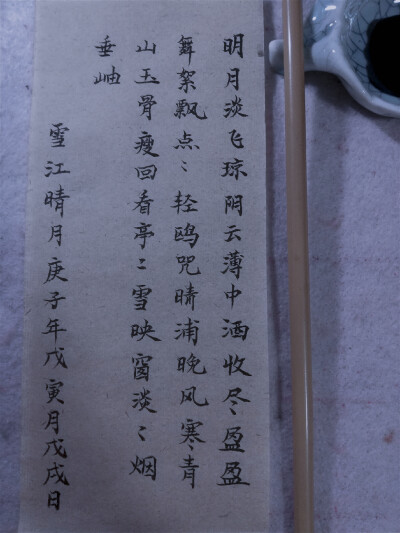 明月淡飞琼阴云薄中酒收尽〻盈盈
舞絮飘点〻轻鸥咒晴浦晚风寒〻青
山玉骨瘦回看亭〻雪映窗淡〻烟
垂岫
雪江晴月庚子年戊寅月戊戌日